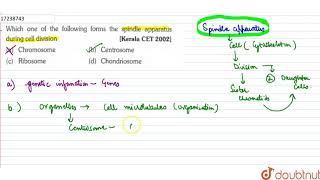 17238743
Which one of the following forms the spindle apparatus
during cell division [Kerala CET 2002]
(a) Chromosome (b) Centrosome
(c) Ribosome (d) Chondriosome
a) genetic information - Genes
b) Organelles → Cell microtubules (organization)
Centrosome -
Spindle apparatus
Cell (Cytoskeleton)
Division
Sister
chromatids
2 Daughter
Cells
doubtnut